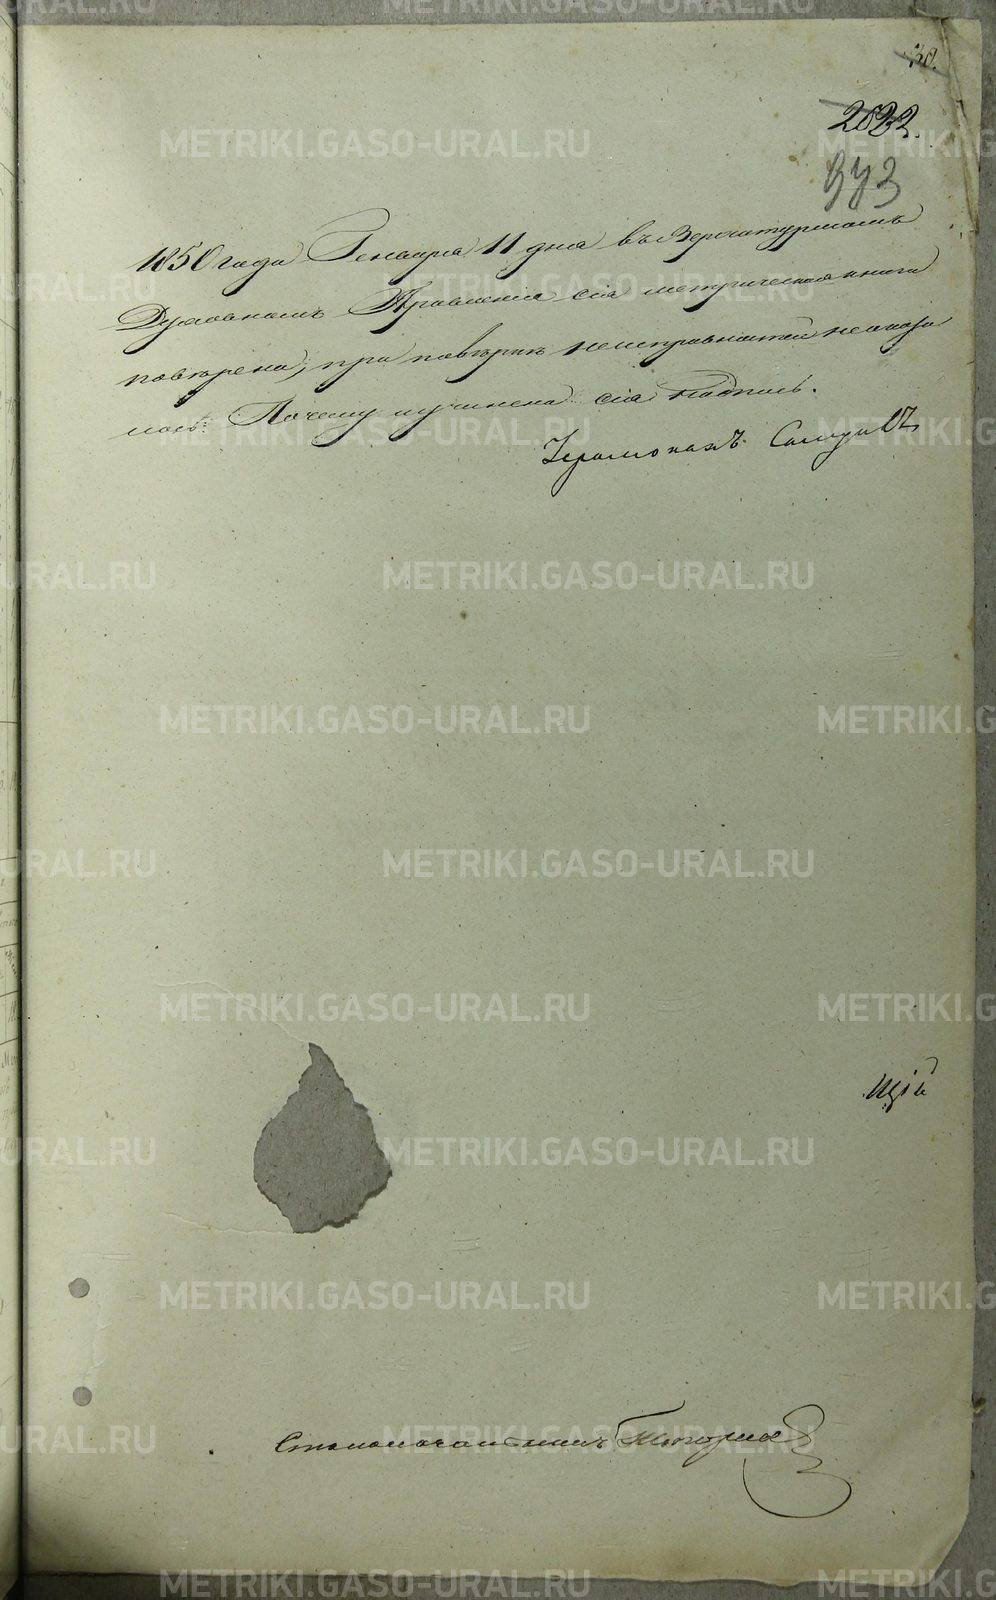 30.
2622.
973
1850 года Генваря 11 дня въ Верхотурскомъ
Духовномъ Правленіи сія метрическая книга
повѣрена, при повѣркѣ неисправностей не оказа
лось. Почему и учинена сія надпись.
Іеромонахъ
щій
Столоначальникъ
METRIKI.GASO-URAL.RU